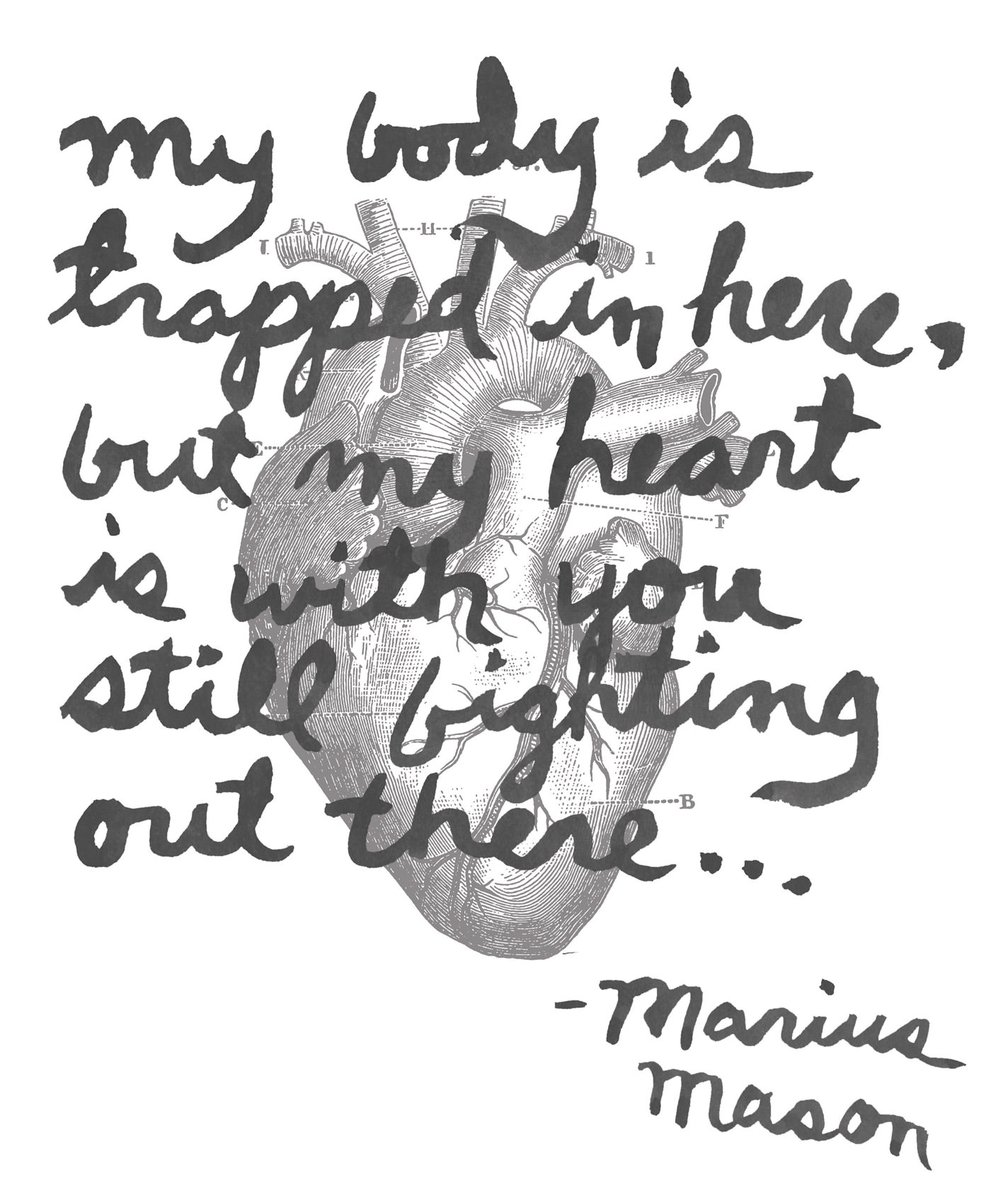 my body is
trapped in here,
but my heart
is with you
still fighting
out there...
- Marius
Mason
H
I
1
E
C
F
B